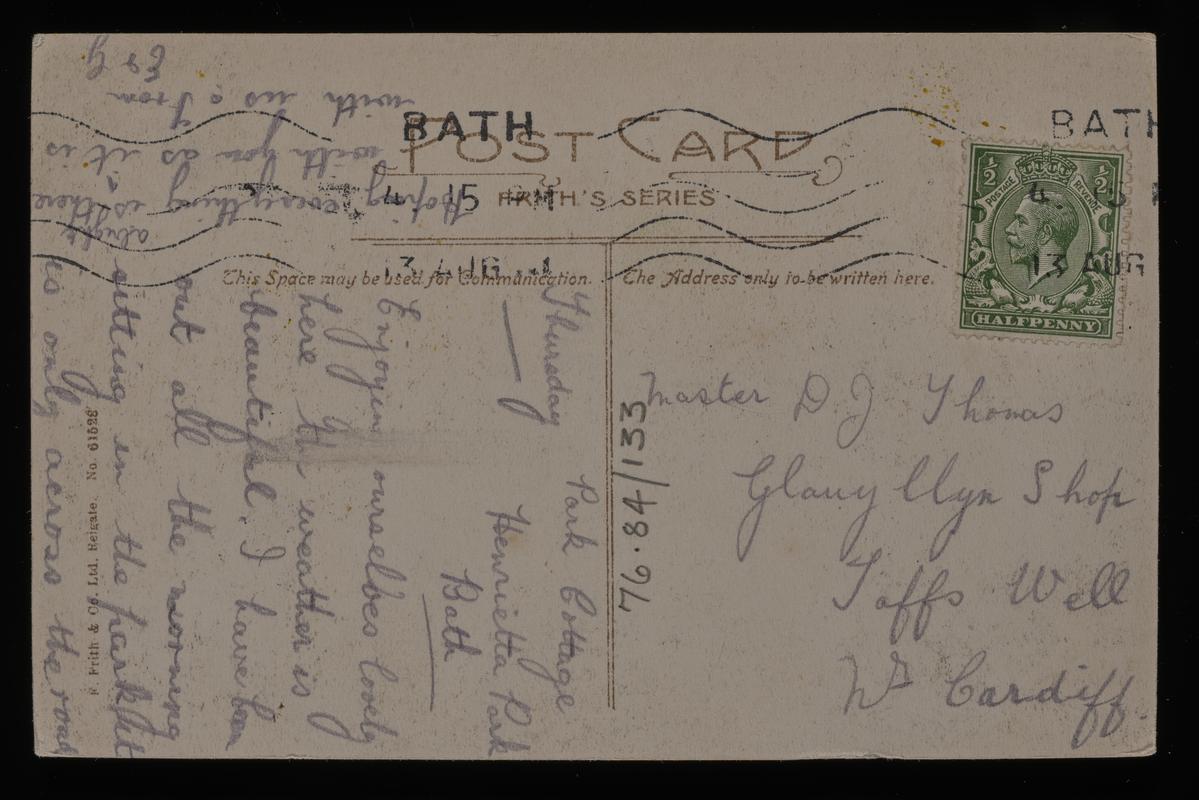 POST CARD
FRITH'S SERIES
This Space may be used for Communication.
The Address only to be written here.
BATH
4. 15 PM
13 AUG
BATH
4.
13 AUG
½ ½
POSTAGE REVENUE
HALFPENNY
Master D J Thomas
Glanyllyn Shop
Taffs Well
Nr Cardiff.
76.84/133
Thursday
Park Cottage
Henrietta Park
Bath
Enjoying ourselves lovely
here the weather is
beautiful. I have been
out all the morning
sitting in the park it
is only across the road
Hoping everything is there
alright
with you as it is
with us. From
E & G
F. Frith & Co. Ltd. Reigate. No. 61528